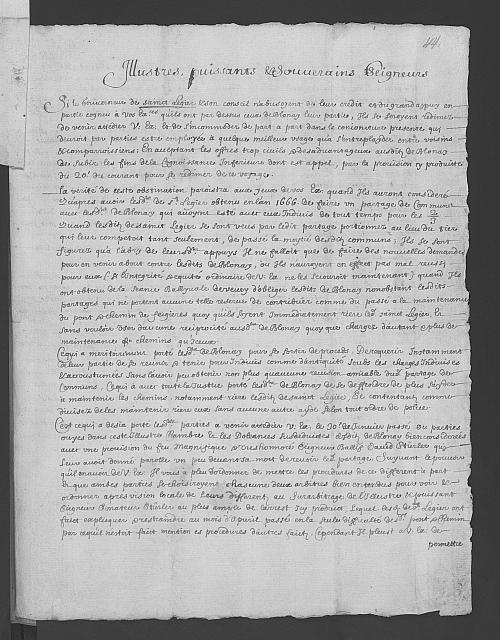 44.
Illustres, puissants & Souverains Seigneurs
Si le Gouverneur de Saint Legier & son conseil n'abusoyent de leur credit et du grand appuy en
partie cogneu a vos Ex. qu'ils ont par dessus ceux de Blonay leur partie, Ils se soyent
de venir attedier V. Ex. & de s'incommoder de part a part dans la conioncture presente, qui
devroit par parties estre employée a quelque meilleur usage qu'a s'entreplaider entre voisins
& comparroissiens; En acceptant les offres trop civils & desadvantageux ausdits de Blonay
de subir les fins de la Cognoissance Inferieure dont est appel, par la provision cy produitte
du 20e du courant pour se redimer de ce voyage.
La verité de ceste obstination paroistra aux yeux de vos Ex. quand Ils auront consideré
qu'apres avoir lesd. de St Legier obtenu en l'an 1666 de faire un partage de Communs
avec lesd. de Blonay qui avoyent esté avec eux Indivis de tout temps pour les 2/3
Quand lesdits de Saint Legier se sont veus par ledit partage portionnez au lieu du tiers
qui leur competoit tant seulement, de passé la moytié desdits communs; Ils se sont
figurez qu'a l'aby de leursd. appuys Il ne falloit que de faire des nouvelles demandes
pour en venir a bout contre lesdits de Blonay, ou Ils n'auroyent en effect pas mal reussi
pour eux (si l'Integrité & equité ordinaire de V. Ex. ne les secouroit maintenant) quand Ils
ont obtenu de la Seance Ballivale de Vevey d'obliger lesdits de Blonay nonobstant lesdits
partages qui ne portent aucune telle reserve de contribuer comme du passé a la maintenance
du pont & chemin de Feigieres quoy qu'ils soyent Immediatement riere led. Saint Legier, &
sans vouloir user d'aucune reciprocité ausd. de Blonay quoy que chargés d'autant & plus de
maintenance de chemins qu'Iceux
Ce qui a meritoirement porté lesd. de Blonay pour se sortir de procedés
a leur partie de se reunir & tenir pour Indivis comme d'antiquité soubs les charges Indivises
& accoustumées sans l'avoir peu obtenir non plus qu'aucune revision amiable dud. partage de
Communs, Ce qui a avec toute Justice porté lesd. de Blonay de se deffendre de plus subir
a maintenir les chemins, notamment riere lesdits de Saint Legier, se contentans comme
divisez de les maintenir riere eux sans aucune autre ayde selon tout ordre de police
C'est ce qui a desia porté lesd. parties a venir attedier V. Ex. le 20e de Janvier passé, ou parties
ouyes dans ceste Illustre Chambre & les Doleances susdeduites desdits de Blonay bien considerées
avec une provision du feu Magnifique & treshonnoré Seigneur Ballif David Stürler qui
leur avoit donné parolle un peu devant sa mort de revoir led. partage, suyvant le pouvoir
qu'il en avoit de V. Ex. Il vous a pleu d'ordonner de mettre les procedures de ce different a part
& que ambes parties se choisiroyent chascune deux arbitres bien entendus pour voir &
ordonner apres vision locale de leurs different, au surarbitrage de l'Illustre & puissant
Seigneur Senateur Stürler au plus ample de l'arrest cy produict Lequel lesd. de St Legier ont
faict expliquer & restraindre au mois d'Apvril passé en la seule difficulté desd. pont & chemin
par ce qu'il n'estoit faict mention es procedures d'autres faict, Cependant Il pleust a V. Ex. de
permettre